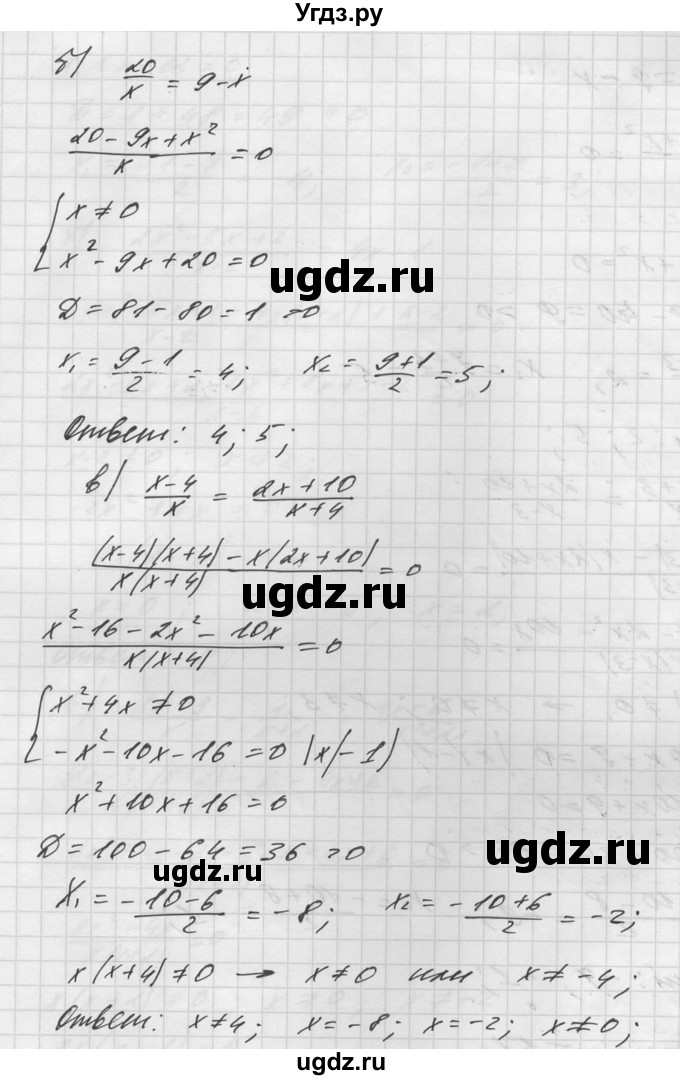 Угдз.ру
б) 20/x = 9-x
(20-9x+x²)/x = 0
{ x≠0
x²-9x+20=0
ugdz.ru
D=81-80=1 >0
x₁ = (9-1)/2 = 4; x₂ = (9+1)/2 = 5;
Ответ: 4; 5;
в) (x-4)/x = (2x+10)/(x+4)
((x-4)(x+4)-x(2x+10))/(x(x+4)) = 0
ugdz.ru
(x²-16-2x²-10x)/(x(x+4)) = 0
{ x²+4x≠0
-x²-10x-16=0 |x(-1)
x²+10x+16=0
D=100-64=36 >0
ugdz.ru
ugdz.ru
x₁ = (-10-6)/2 = -8; x₂ = (-10+6)/2 = -2;
x(x+4)≠0 → x≠0 или x≠-4;
Ответ: x≠4; x=-8; x=-2; x≠0;
ugdz.ru